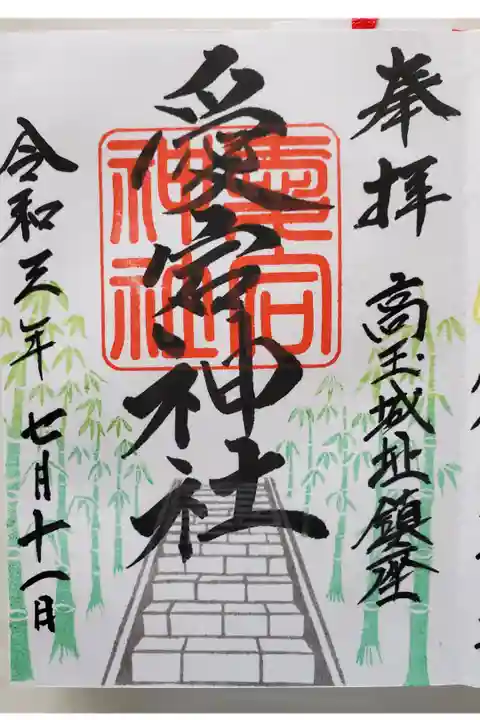 奉拝
高玉城址鎮座
愛宕神社
愛宕神社
令和三年七月十一日